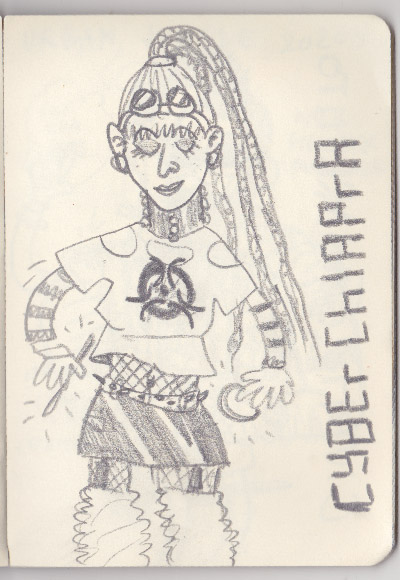 CYBEr ChIAPrA